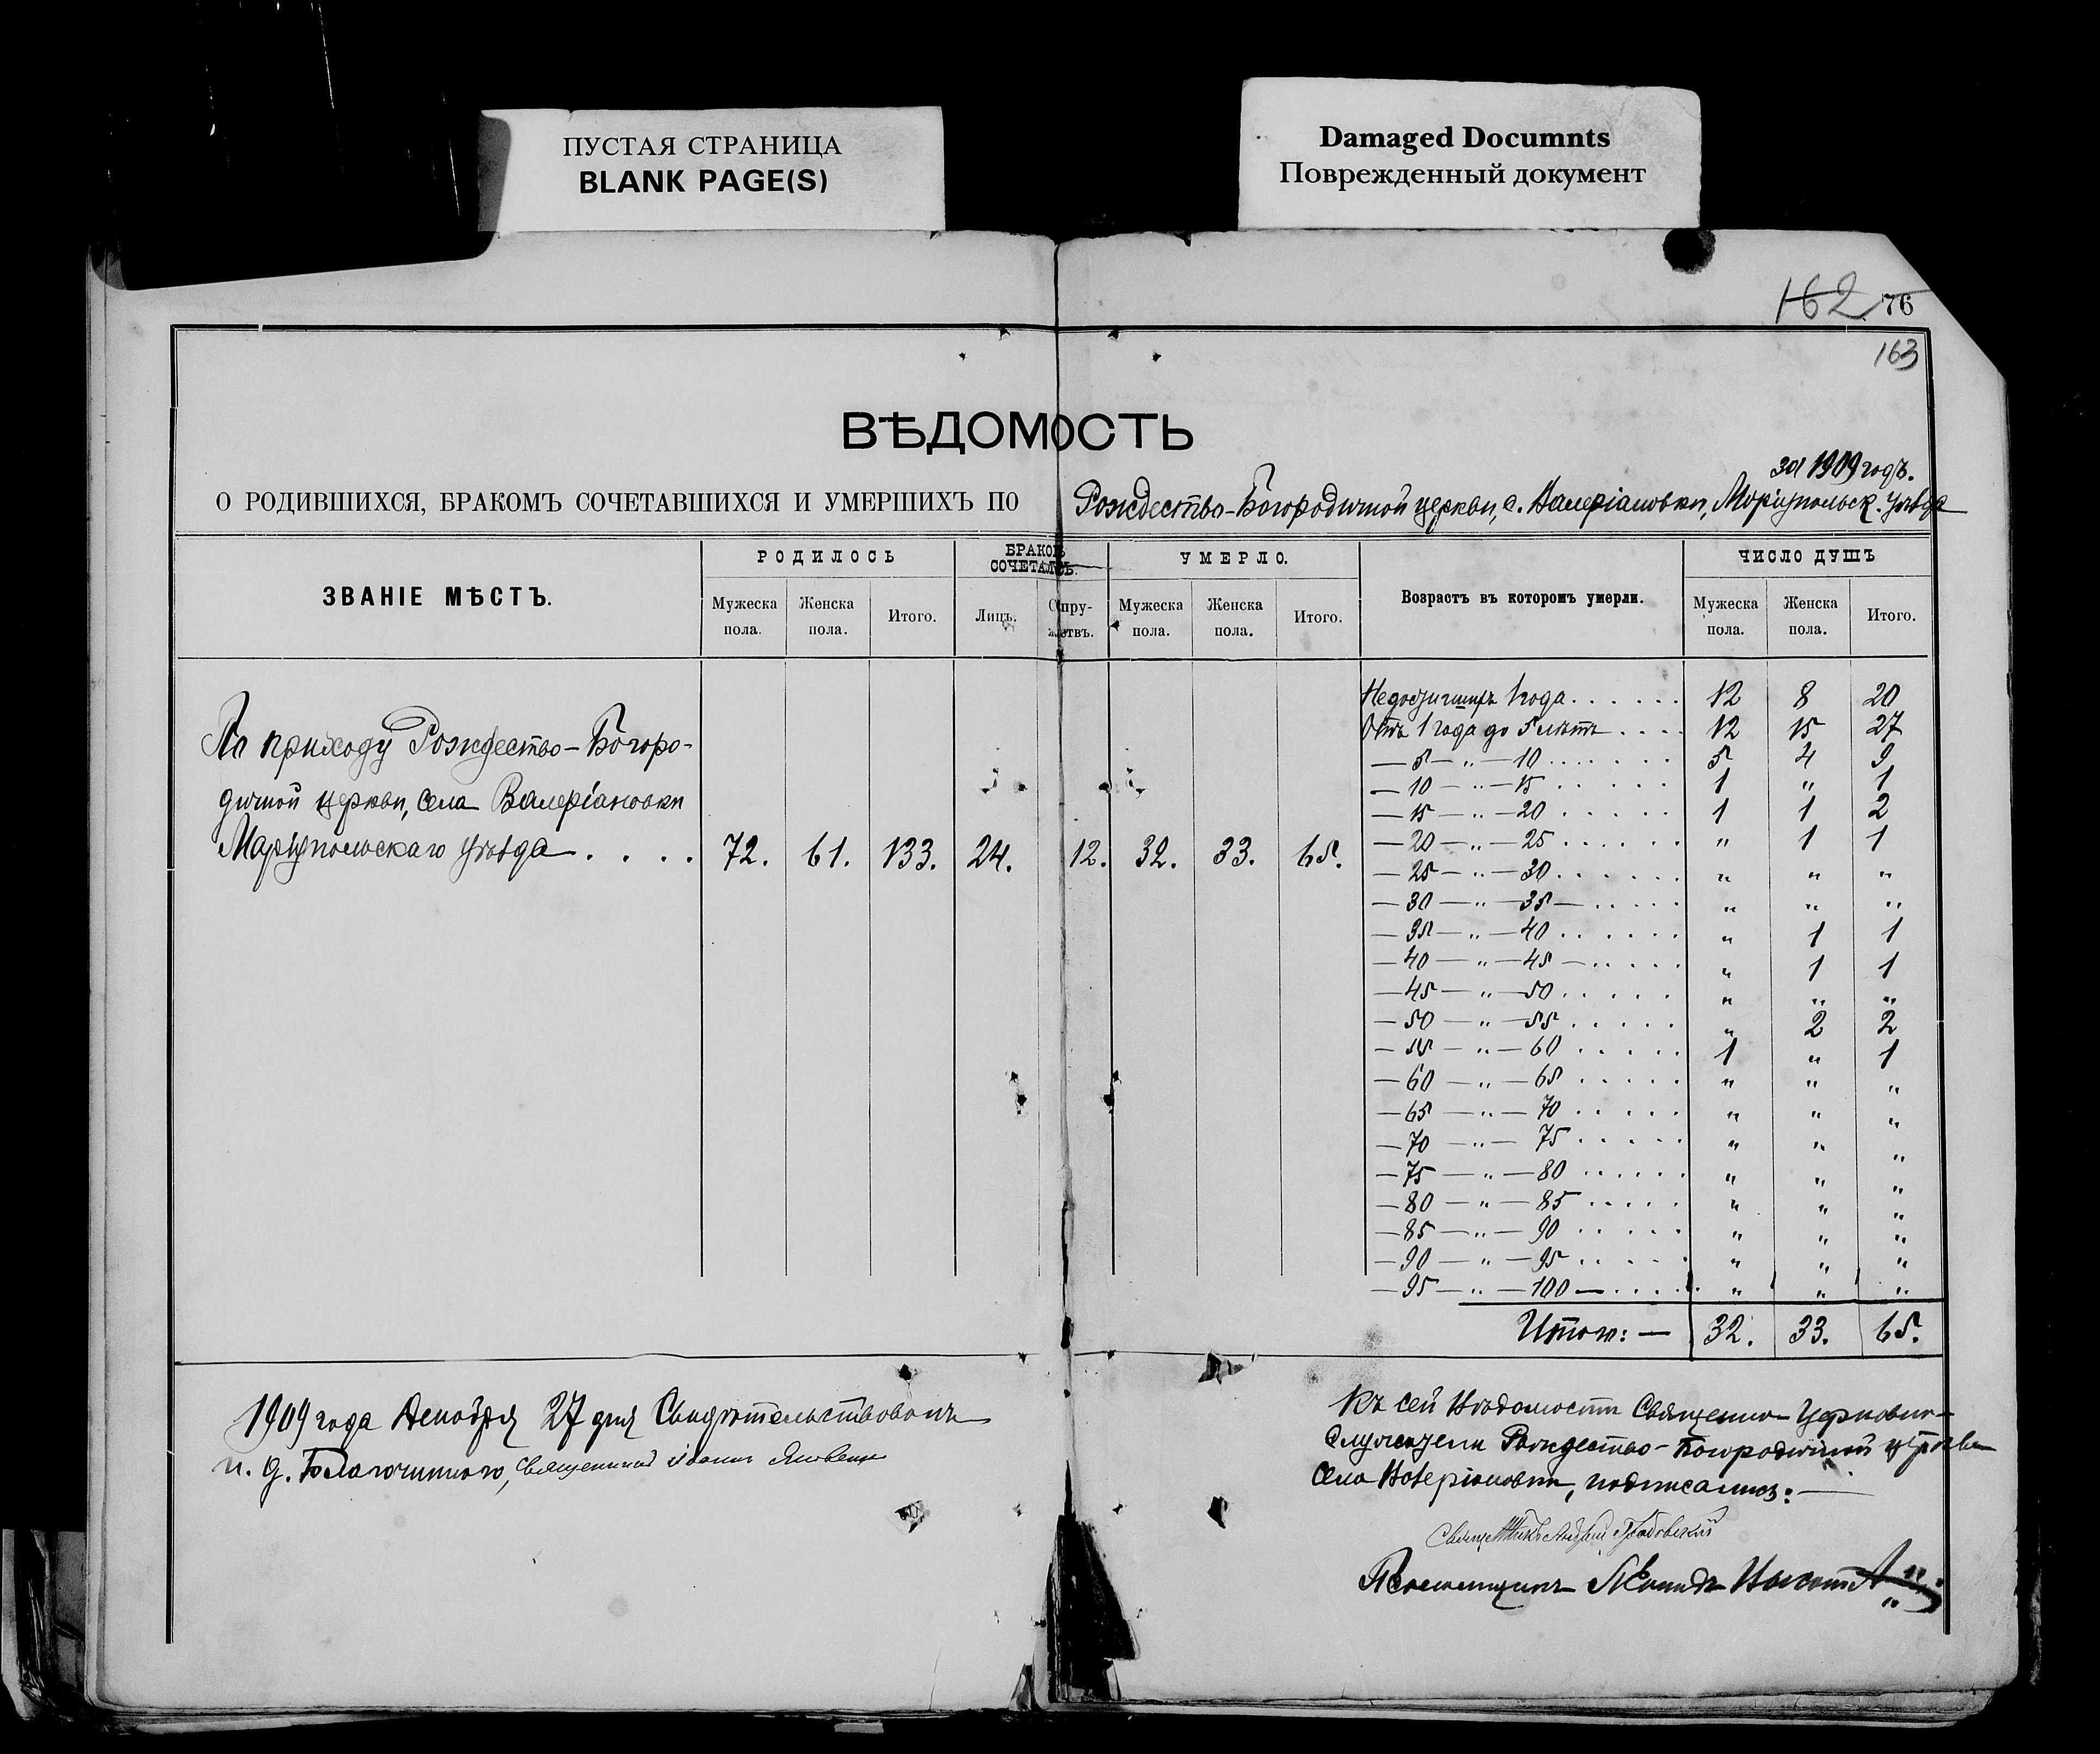 ПУСТАЯ СТРАНИЦА
BLANK PAGE(S)
Damaged Documnts
Поврежденный документ
162 76
163
ВѢДОМОСТЬ
за 1909 годъ.
О РОДИВШИХСЯ, БРАКОМЪ СОЧЕТАВШИХСЯ И УМЕРШИХЪ ПО Рождество-Богородичной церкви, с. Валеріановки, Маріупольск. уѣзда
ЗВАНІЕ МѢСТЪ. РОДИЛОСЬ БРАКОМЪ СОЧЕТАЛОСЬ. УМЕРЛО. Возрастъ въ которомъ умерли. ЧИСЛО ДУШЪ
Мужеска пола. Женска пола. Итого. Лицъ. Супружествъ. Мужеска пола. Женска пола. Итого. Мужеска пола. Женска пола. Итого.
По приходу Рождество-Богоро-
дичной церкви, села Валеріановки
Маріупольскаго уѣзда . . . . 72. 61. 133. 24. 12. 32. 33. 65.
Недостигшихъ 1 года . . . . . . 12 8 20
Отъ 1 года до 5 лѣтъ . . . . 12 15 27
— 5 — " — 10 . . . . . . . 5 4 9
— 10 — " — 15 . . . . . . 1 " 1
— 15 — " — 20 . . . . . . 1 1 2
— 20 — " — 25 . . . . . . " 1 1
— 25 — " — 30 . . . . . . " " "
— 30 — " — 35 — . . . . . " " "
— 35 — " — 40 . . . . . . " 1 1
— 40 — " — 45 — . . . . . " 1 1
— 45 — " — 50 . . . . . " " "
— 50 — " — 55 . . . . . " 2 2
— 55 — " — 60 . . . . . 1 " 1
— 60 — " — 65 . . . . . " " "
— 65 — " — 70 . . . . . " " "
— 70 — " — 75 . . . . . " " "
— 75 — " — 80 . . . . . . " " "
— 80 — " — 85 . . . . . " " "
— 85 — " — 90 . . . . . " " "
— 90 — " — 95 . . . . . " " "
— 95 — " — 100 — . . . . . " " "
Итого: — 32. 33. 65.
1909 года Декабря 27 дня Свидѣтельствовалъ
и. д. Благочиннаго, Священникъ Іоаннъ Яковенко
Къ сей Вѣдомости Священно-Церковно-
служители Рождество-Богородичной церкви
села Валеріановки, подписались: —
Священникъ Андрей
Псаломщикъ Леонидъ